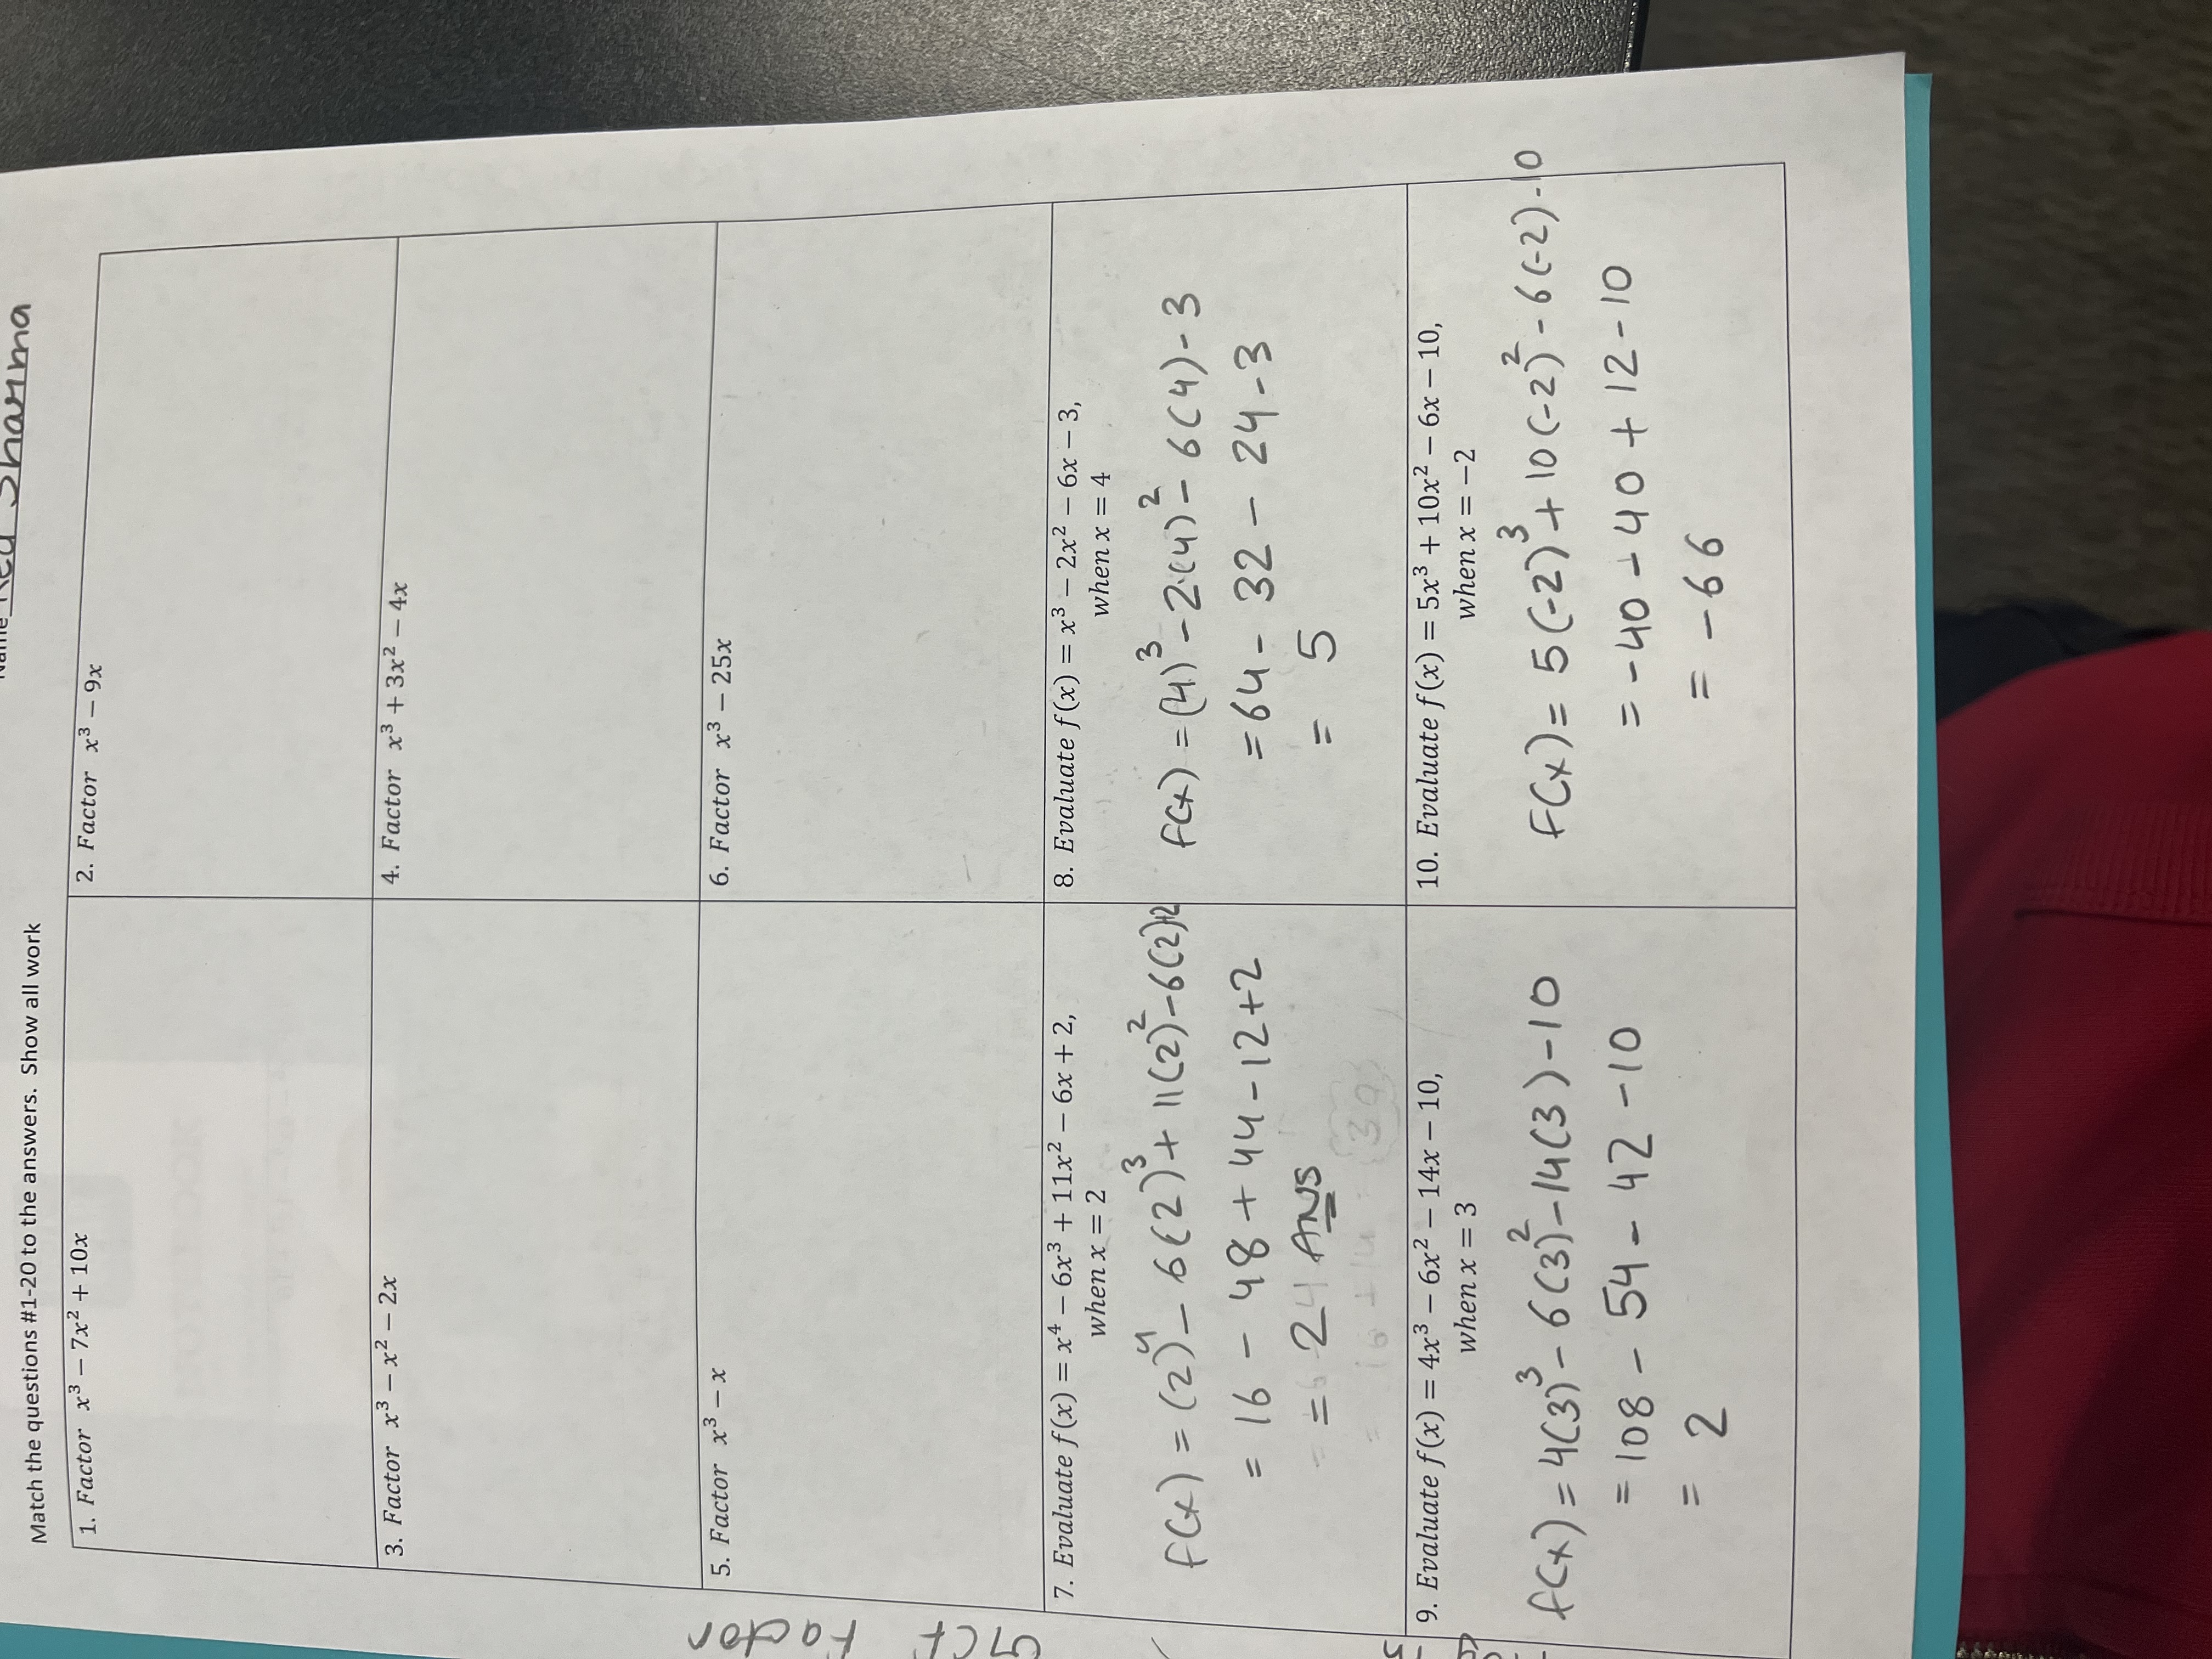 Sharma
Match the questions #1-20 to the answers. Show all work
1. Factor x³ − 7x² + 10x
2. Factor x³ − 9x
3. Factor x³ − x² − 2x
4. Factor x³ + 3x² − 4x
5. Factor x³ − x
6. Factor x³ − 25x
7. Evaluate f(x) = x⁴ − 6x³ + 11x² − 6x + 2,
when x = 2
f(x) = (2)⁴ − 6(2)³ + 11(2)² − 6(2)+2
= 16 − 48 + 44 − 12 + 2
= 2 Ans
8. Evaluate f(x) = x³ − 2x² − 6x − 3,
when x = 4
f(x) = (4)³ − 2(4)² − 6(4) − 3
= 64 − 32 − 24 − 3
= 5
9. Evaluate f(x) = 4x³ − 6x² − 14x − 10,
when x = 3
f(x) = 4(3)³ − 6(3)² − 14(3) − 10
= 108 − 54 − 42 − 10
= 2
10. Evaluate f(x) = 5x³ + 10x² − 6x − 10,
when x = −2
f(x) = 5(−2)³ + 10(−2)² − 6(−2) − 10
= −40 − 40 + 12 − 10
= −66
GCF
Factor